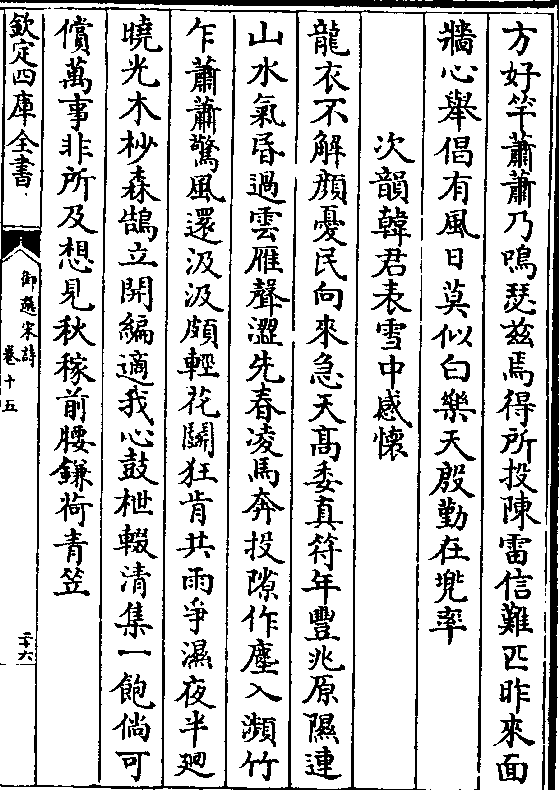 方好竿蕭蕭乃鳴瑟兹焉得所投陳雷信難匹昨來面
牆心舉倡有風日莫似白樂天殷勤在兜率
次韻韓君表雪中感懷
龍衣不解顔憂民向來急天髙委真符年豐兆原隰連
山水氣昏過雲雁聲澀先春凌馬奔投隙作塵入瀕竹
乍蕭蕭驚風還汲汲頗輕花鬬狂肯共雨爭濕夜半廻
曉光木杪森鵠立開編適我心鼓枻輟清集一飽倘可
償萬事非所及想見秋稼前腰鎌荷青笠
欽定四庫全書
御選宋詩
卷十五
二十六